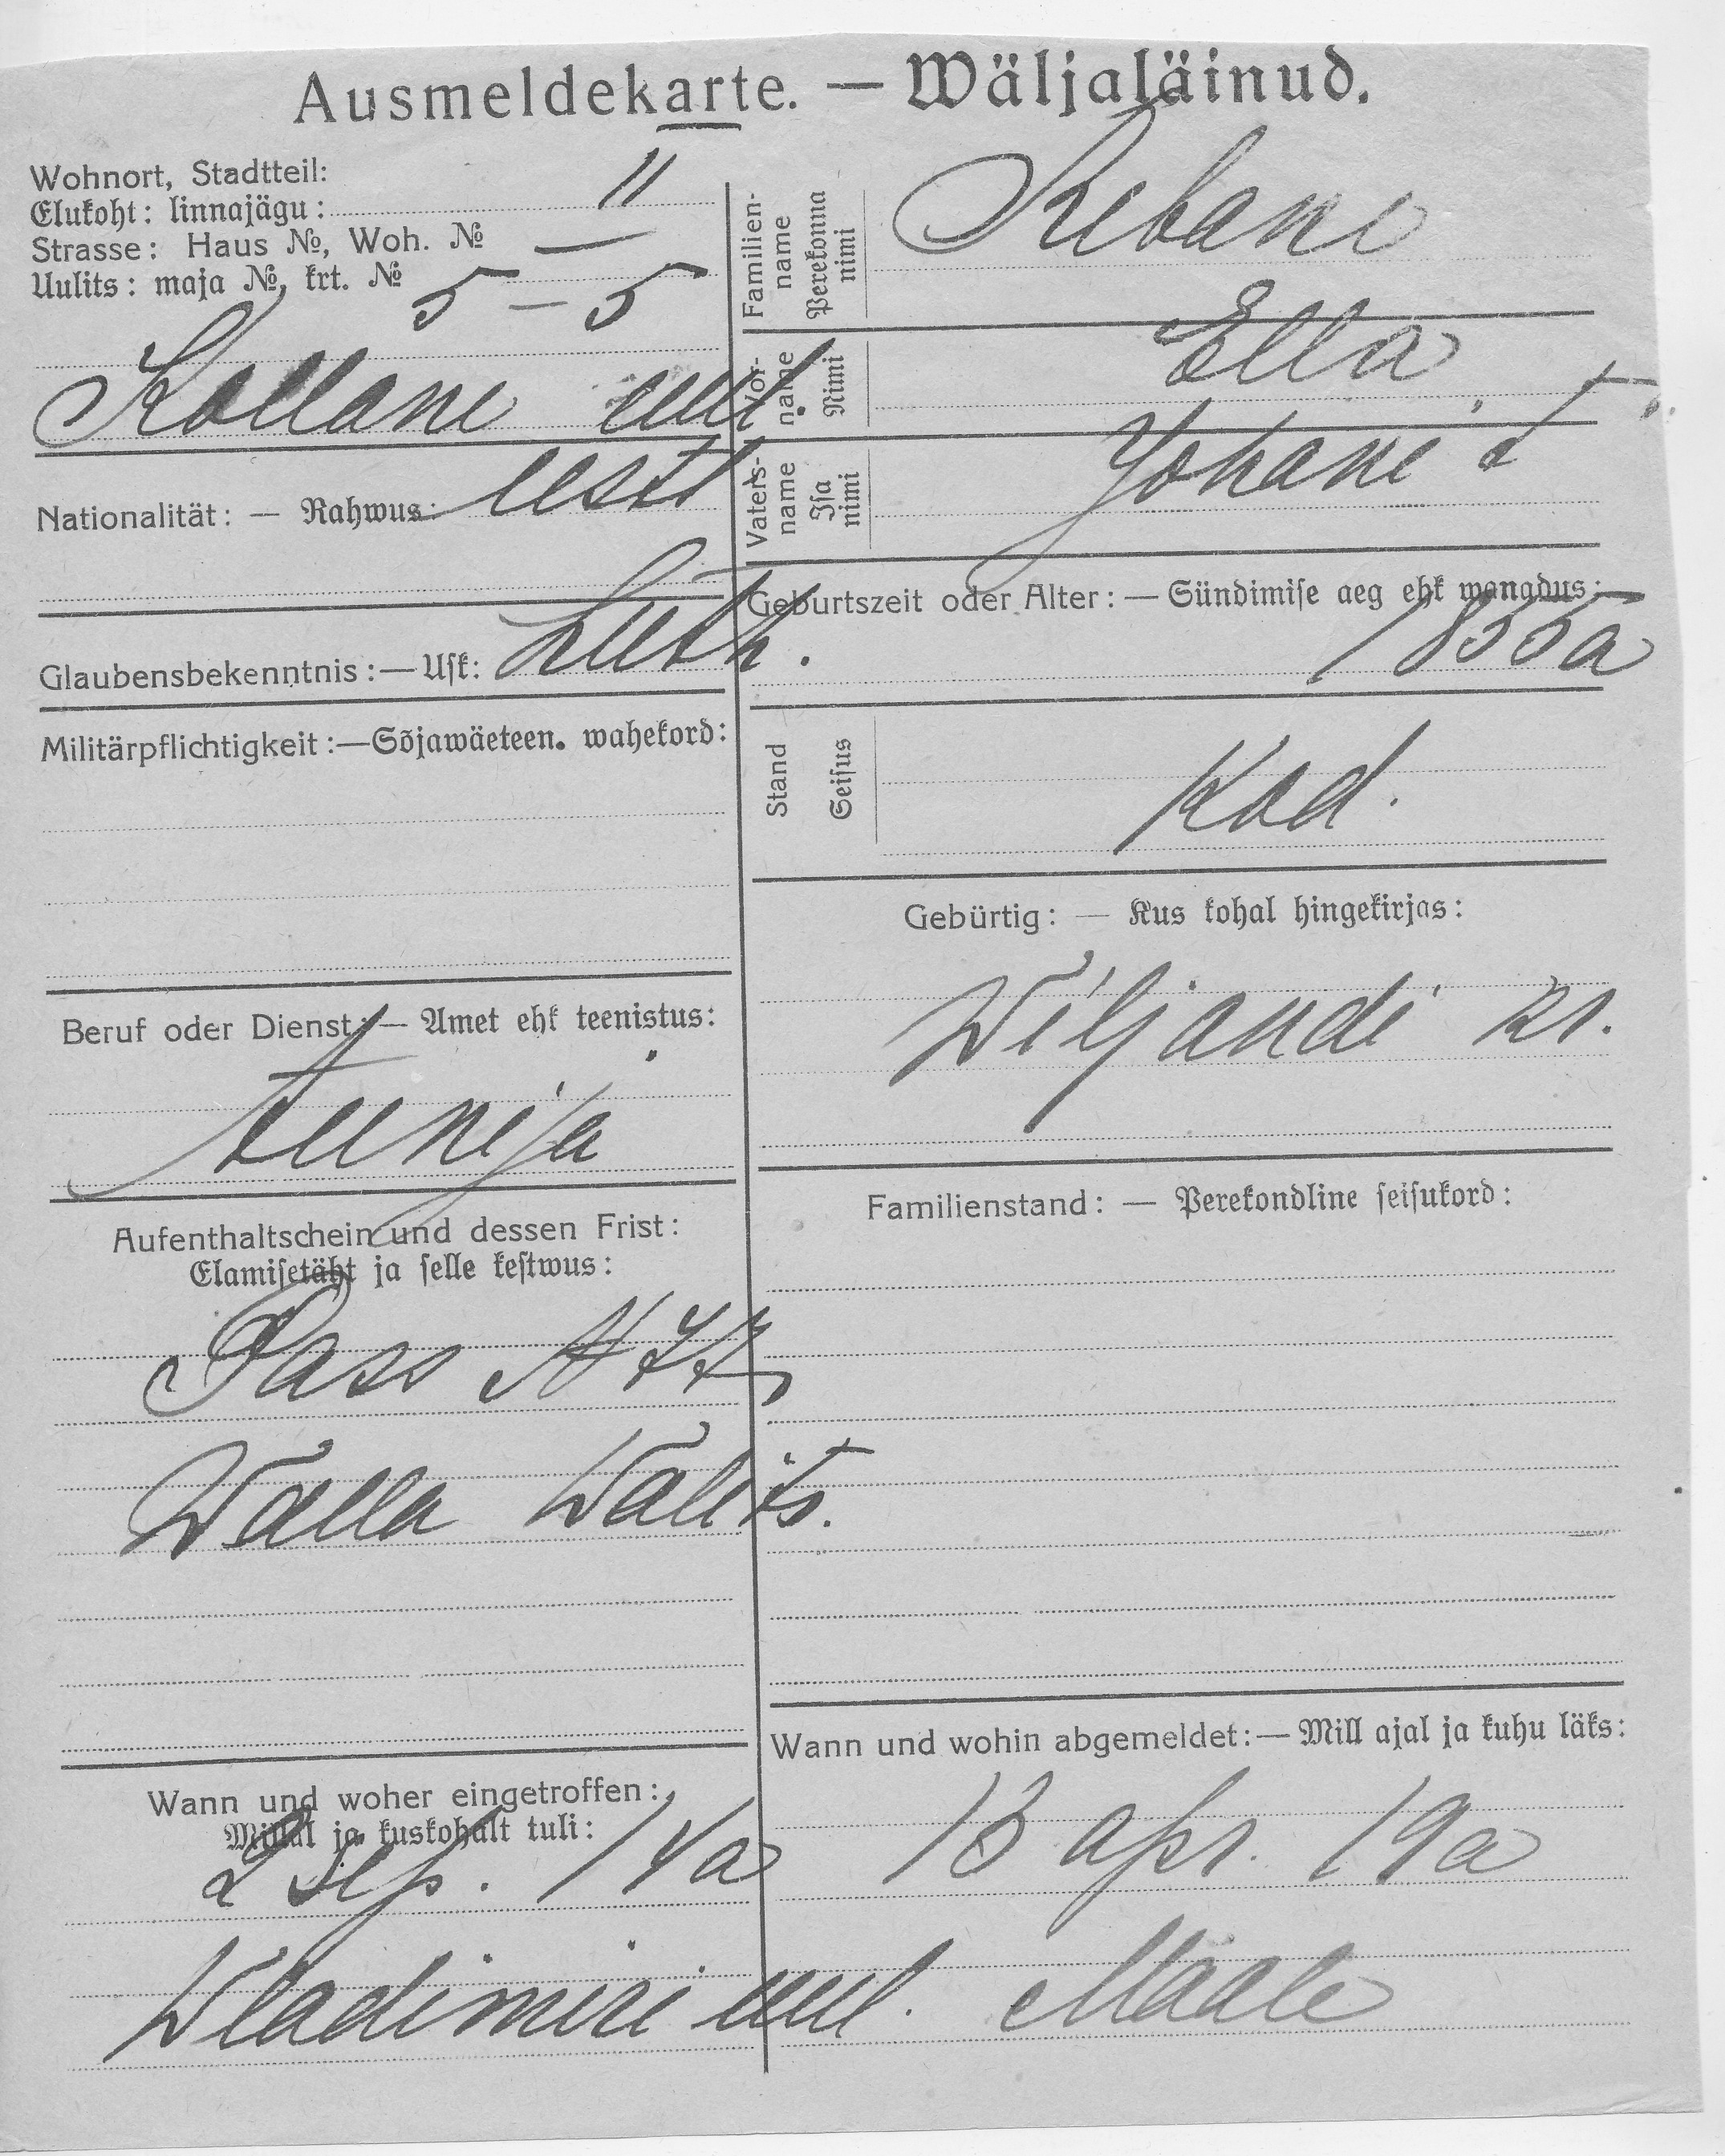 Ausmeldekarte. — Wäljaläinud.
Wohnort, Stadtteil:
Elukoht: linnajägu: II
Strasse: Haus №, Woh. №
Uulits: maja №, krt. № 5 – 5
Kollane uul.
Nationalität: — Rahwus: eesti
Glaubensbekenntnis: — Usk: Luth.
Militärpflichtigkeit: — Sõjawäeteen. wahekord:
Beruf oder Dienst: — Amet ehk teenistus:
tenija
Aufenthaltschein und dessen Frist:
Elamisetäht ja selle kestwus:
Pass №
Walla Walits.
Wann und woher eingetroffen:
Millal ja kuskohalt tuli:
2 Sep. 14a
Wladimiri uul.
Familien-name
Perekonna nimi
Rebane
Vor-name
Nimi
Ella
Vaters-name
Isa nimi
Johani t.
Geburtszeit oder Alter: — Sündimise aeg ehk wanadus:
1855a
Stand
Seisus
Kod.
Gebürtig: — Kus kohal hingekirjas:
Wiljandi kr.
Familienstand: — Perekondline seisukord:
Wann und wohin abgemeldet: — Mill ajal ja kuhu läks:
13 apr. 19a
Maale